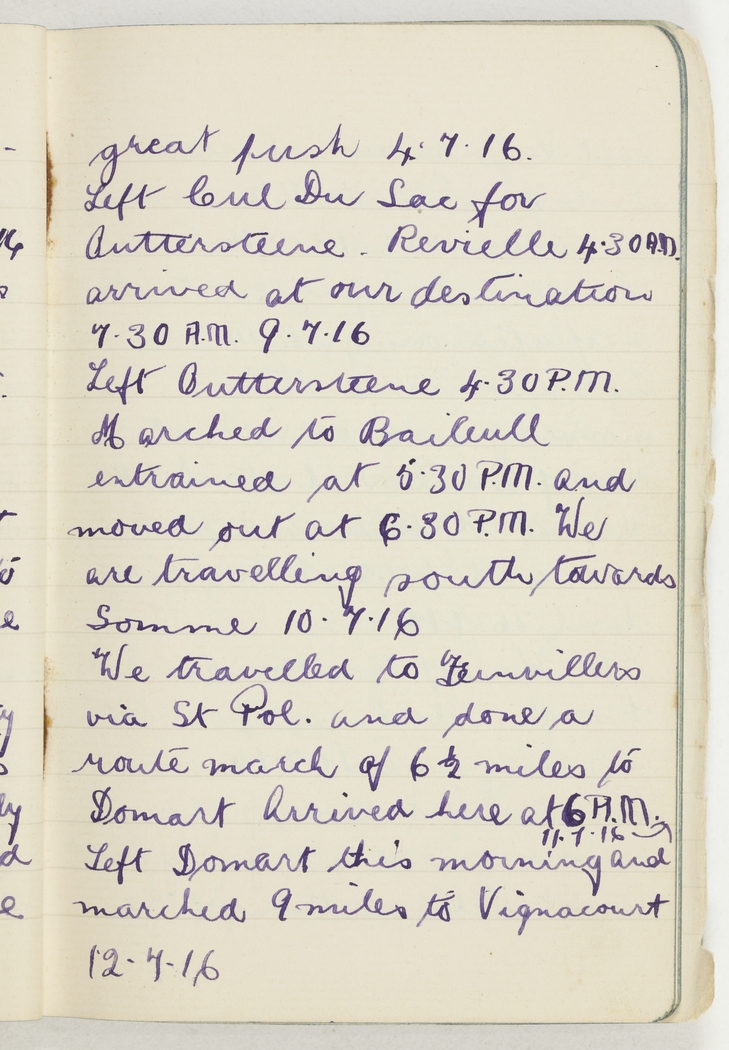 great push 4.7.16.
Left Cul Du Sac for
Outtersteene. Revielle 4.30 A.M.
arrived at our destination
7.30 A.M. 9.7.16
Left Outtersteene 4.30 P.M.
Marched to Baileull
entrained at 5.30 P.M. and
moved out at 6.30 P.M. We
are travelling south towards
Somme 10.7.16
We travelled to Feinvillers
via St Pol. and done a
route march of 6½ miles to
Domart Arrived here at 6 A.M.
11.7.16
Left Domart this morning and
marched 9 miles to Vignacourt
12.7.16